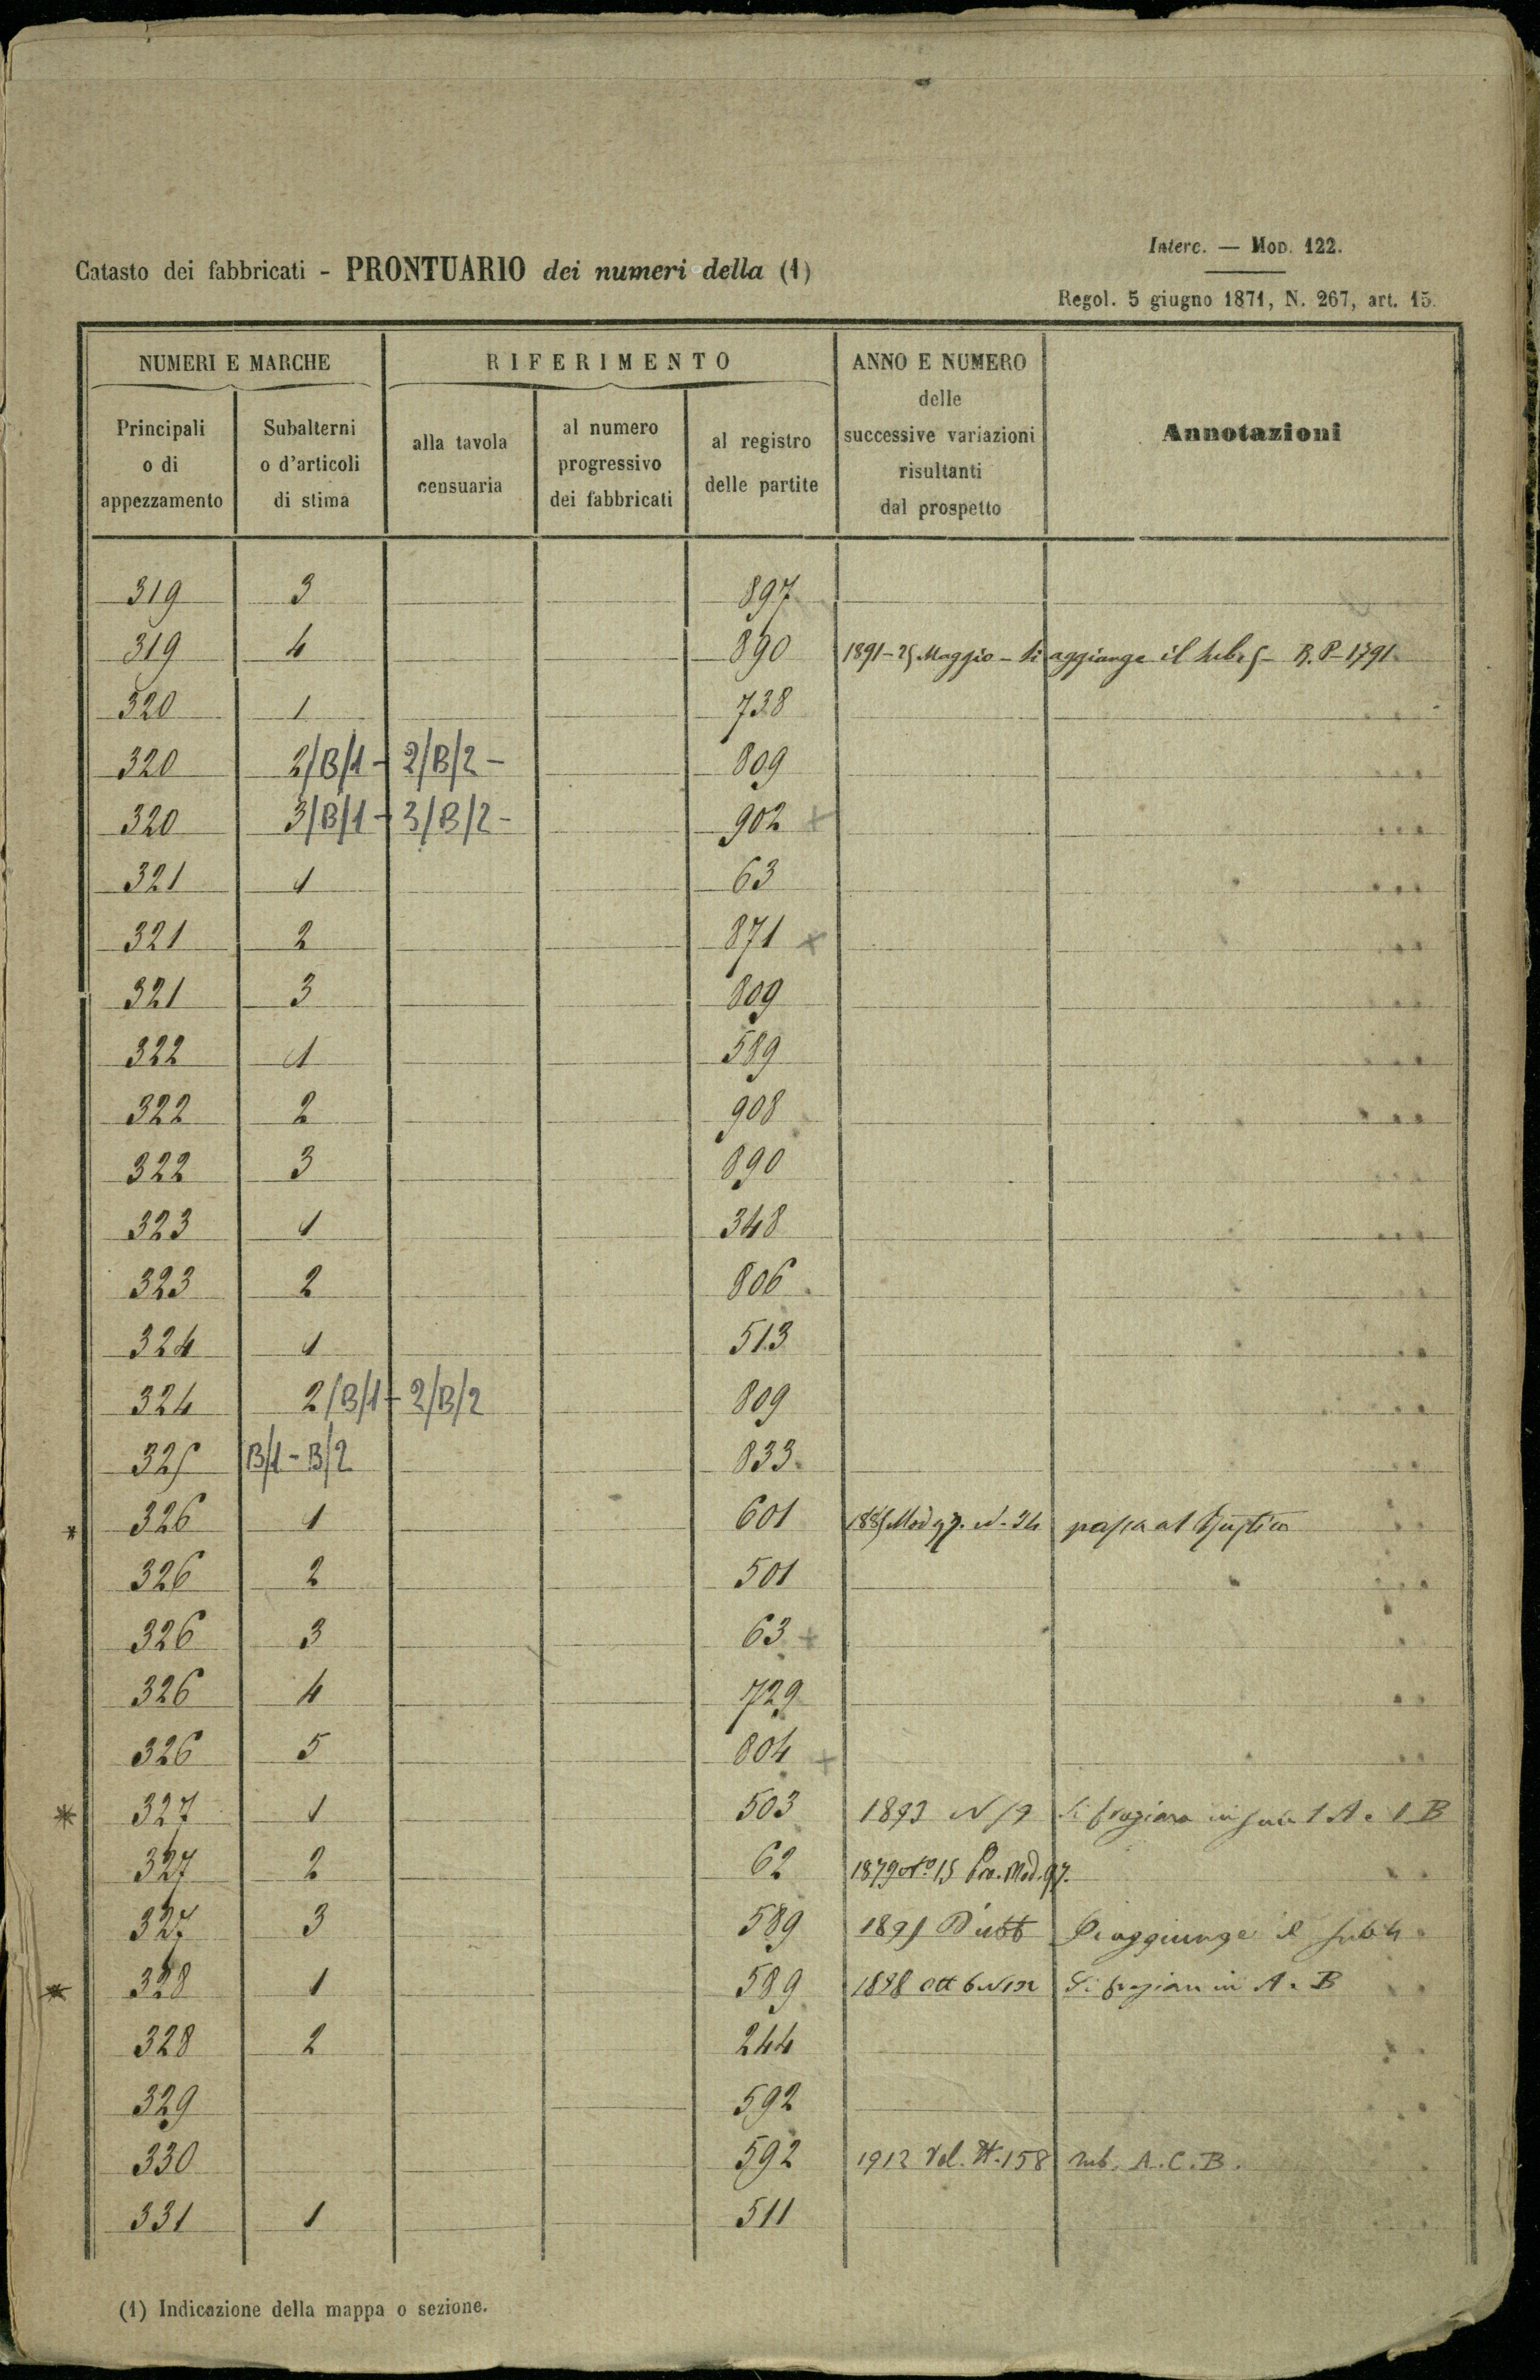 Interc. — Mod. 122.
Catasto dei fabbricati - PRONTUARIO dei numeri della (1)
Regol. 5 giugno 1871, N. 267, art. 15.
NUMERI E MARCHE RIFERIMENTO ANNO E NUMERO delle successive variazioni risultanti dal prospetto Annotazioni
Principali o di appezzamento Subalterni o d'articoli di stima alla tavola censuaria al numero progressivo dei fabbricati al registro delle partite
319 3 897
319 4 890 1891 - 25 Maggio - Si aggiunge il sub. 5 - R. P. 1791
320 1 738
320 2/B/1 - 2/B/2 - 809
320 3/B/1 - 3/B/2 - 902 +
321 1 63
321 2 871 +
321 3 809
322 1 589
322 2 908
322 3 890
323 1 348
323 2 806
324 1 513
324 2/B/1 - 2/B/2 809
325 B/1 - B/2 833
* 326 1 601 1885 Mod 97. N. 34 passa al
326 2 501
326 3 63 +
326 4 729
326 5 804 +
* 327 1 503 1893 N in sub 1 A e 1 B
327 2 62 1879 No 15 Mod. 97.
327 3 589 1895 Si aggiunge il sub 4
* 328 1 589 1898 ott 6 in A e B
328 2 244
329 592
330 592 1912 Vol. 158 sub. A. C. B.
331 1 511
(1) Indicazione della mappa o sezione.